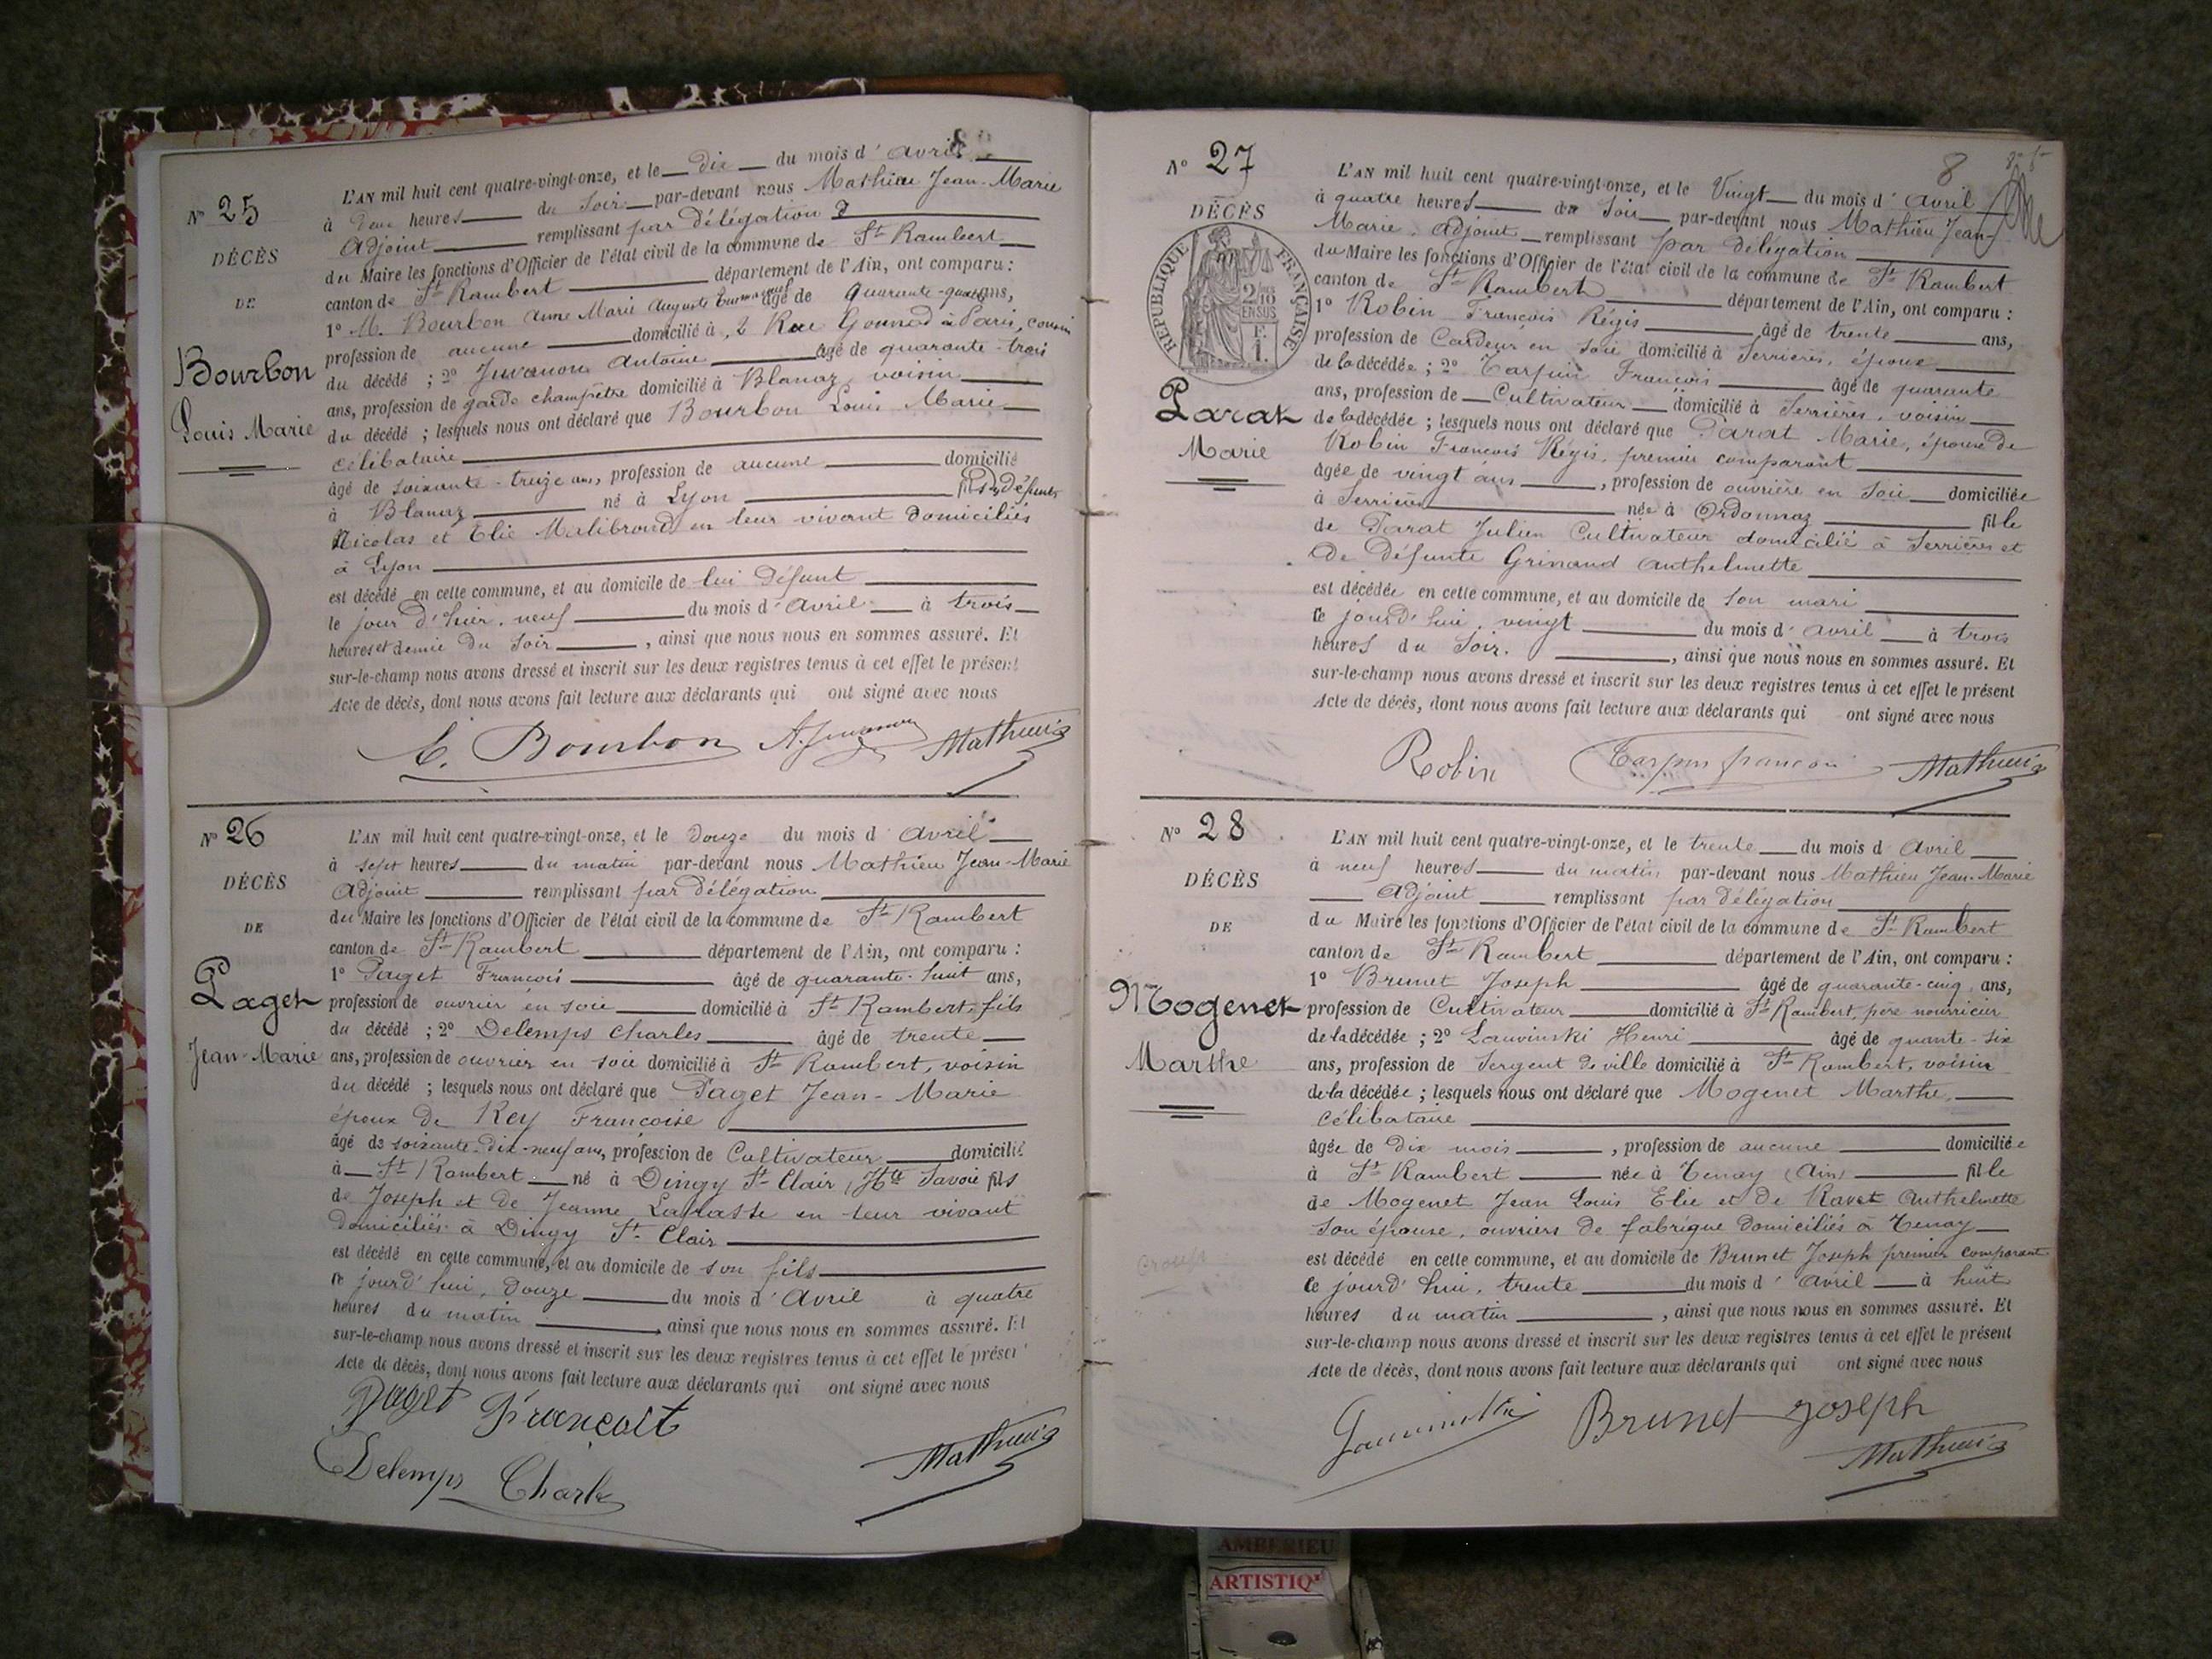 Nº 25
DÉCÈS
DE
Bourbon
Louis Marie
L'AN mil huit cent quatre-vingt-onze, et le dix du mois d'avril
à deux heures du soir par-devant nous Mathieu Jean-Marie
Adjoint remplissant par délégation
du Maire les fonctions d'Officier de l'état civil de la commune de St Rambert
canton de St Rambert département de l'Ain, ont comparu :
1º M. Bourbon Anne Marie Auguste âgé de quarante-quatre ans,
profession de aucune domicilié à, 2 Rue Gounod à Paris, cousin
du décédé ; 2º Juvanon Antoine âgé de quarante-trois
ans, profession de garde champêtre domicilié à Blanaz, voisin
du décédé ; lesquels nous ont déclaré que Bourbon Louis Marie
célibataire
âgé de soixante-treize ans, profession de aucune domicilié
à Blanaz né à Lyon fils de défunts
Nicolas et Elie Malibrand en leur vivant domiciliés
à Lyon
est décédé en cette commune, et au domicile de lui défunt
le jour d'hier, neuf du mois d'avril à trois
heures et demie du soir, ainsi que nous nous en sommes assuré. Et
sur-le-champ nous avons dressé et inscrit sur les deux registres tenus à cet effet le présent
Acte de décès, dont nous avons fait lecture aux déclarants qui ont signé avec nous
E. Bourbon A. Juvanon Mathieu
Nº 26
DÉCÈS
DE
Paget
Jean-Marie
L'AN mil huit cent quatre-vingt-onze, et le douze du mois d'avril
à sept heures du matin par-devant nous Mathieu Jean-Marie
Adjoint remplissant par délégation
du Maire les fonctions d'Officier de l'état civil de la commune de St Rambert
canton de St Rambert département de l'Ain, ont comparu :
1º Paget François âgé de quarante-huit ans,
profession de ouvrier en soie domicilié à St Rambert, fils
du décédé ; 2º Delemps Charles âgé de trente
ans, profession de ouvrier en soie domicilié à St Rambert, voisin
du décédé ; lesquels nous ont déclaré que Paget Jean-Marie
époux de Rey Francoise
âgé de soixante-dix-neuf ans, profession de Cultivateur domicilié
à St Rambert né à Dingy St Clair, Hte Savoie fils
de Joseph et de Jeanne en leur vivant
domiciliés à Dingy St Clair
est décédé en cette commune, et au domicile de son fils
ce jourd'hui, douze du mois d'Avril à quatre
heures du matin, ainsi que nous nous en sommes assuré. Et
sur-le-champ nous avons dressé et inscrit sur les deux registres tenus à cet effet le présent
Acte de décès, dont nous avons fait lecture aux déclarants qui ont signé avec nous
Paget Francoit
Delemps Charles Mathieu
8
Nº 27
DÉCÈS
REPUBLIQUE FRANÇAISE
2/10 EN SUS
F. 1.
Parat
Marie
L'AN mil huit cent quatre-vingt-onze, et le Vingt du mois d'avril
à quatre heures du soir par-devant nous Mathieu Jean-
Marie, adjoint remplissant par délégation
du Maire les fonctions d'Officier de l'état civil de la commune de St Rambert
canton de St Rambert département de l'Ain, ont comparu :
1º Robin François Régis âgé de trente ans,
profession de Cardeur en soie domicilié à Serrières, époux
de la décédée ; 2º Tarpin François âgé de quarante
ans, profession de Cultivateur domicilié à Serrières, voisin
de la décédée ; lesquels nous ont déclaré que Parat Marie, épouse de
Robin François Régis, premier comparant
âgée de vingt ans, profession de ouvrière en soie domiciliée
à Serrières née à Ordonnaz fille
de Parat Julien Cultivateur domicilié à Serrières et
de défunte Grinand Anthelmette
est décédée en cette commune, et au domicile de son mari
ce jourd'hui, vingt du mois d'avril à trois
heures du soir, ainsi que nous nous en sommes assuré. Et
sur-le-champ nous avons dressé et inscrit sur les deux registres tenus à cet effet le présent
Acte de décès, dont nous avons fait lecture aux déclarants qui ont signé avec nous
Robin Tarpin francois Mathieu
Nº 28
DÉCÈS
DE
Mogenet
Marthe
L'AN mil huit cent quatre-vingt-onze, et le trente du mois d'Avril
à neuf heures du matin par-devant nous Mathieu Jean-Marie
Adjoint remplissant par délégation
du Maire les fonctions d'Officier de l'état civil de la commune de St Rambert
canton de St Rambert département de l'Ain, ont comparu :
1º Brunet Joseph âgé de quarante-cinq ans,
profession de Cultivateur domicilié à St Rambert, père nourricier
de la décédée ; 2º Lauvinski Henri âgé de quante-six
ans, profession de Sergent de ville domicilié à St Rambert, voisin
de la décédée ; lesquels nous ont déclaré que Mogenet Marthe,
célibataire
âgée de dix mois, profession de aucune domiciliée
à St Rambert née à Tenay (Ain) fille
de Mogenet Jean Louis Elie et de Ravet Anthelmette
son épouse, ouvriers de fabrique domiciliés à Tenay
est décédé en cette commune, et au domicile de Brunet Joseph premier comparant
ce jourd'hui, trente du mois d'Avril à huit
heures du matin, ainsi que nous nous en sommes assuré. Et
sur-le-champ nous avons dressé et inscrit sur les deux registres tenus à cet effet le présent
Acte de décès, dont nous avons fait lecture aux déclarants qui ont signé avec nous
Brunet joseph
Mathieu
croup
AMBERIEU
ARTISTIQ